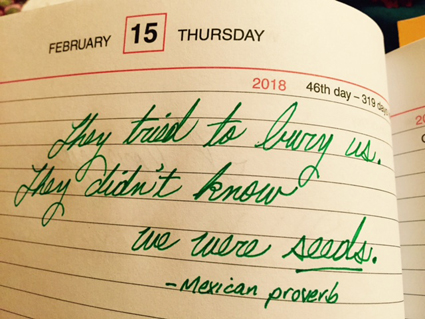 FEBRUARY 15 THURSDAY
2018 46th day – 319 day
They tried to bury us.
They didn't know
we were seeds.
-Mexican proverb